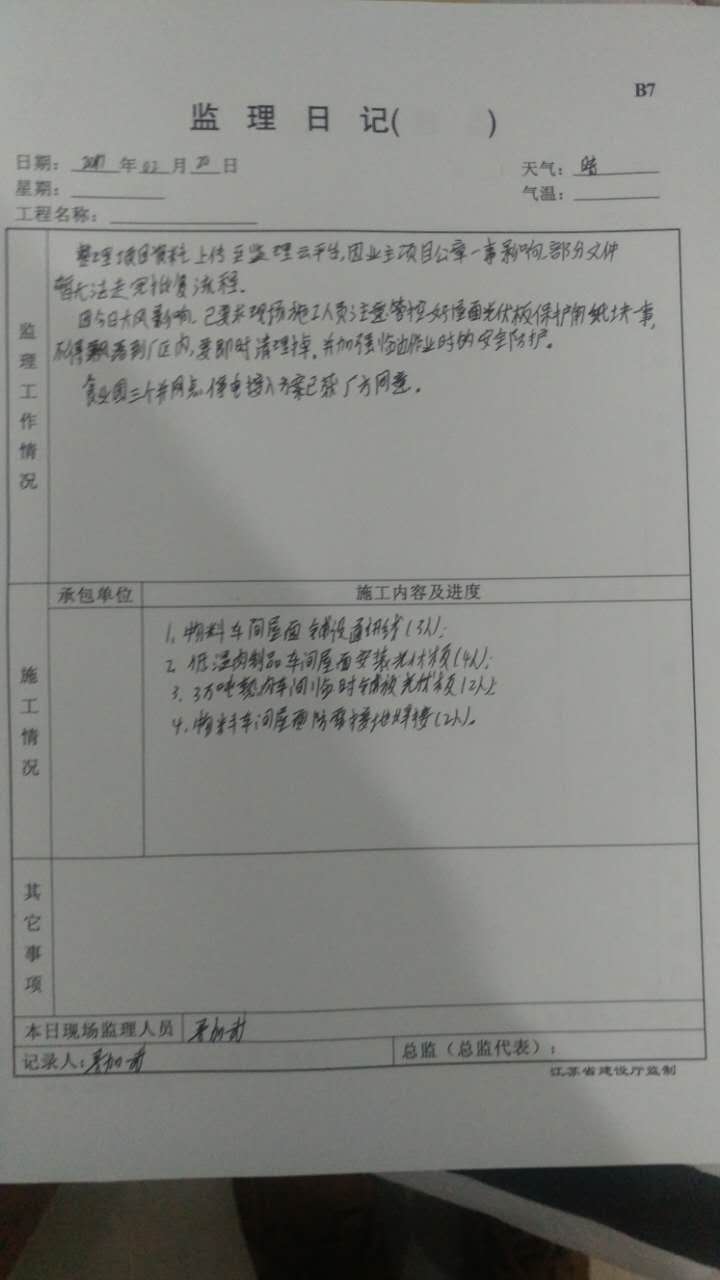 B7
监 理 日 记( )
日期: 2017 年 02 月 20 日
天气: 晴
星期:
气温:
工程名称:
监理工作情况
整理项目资料上传至监理云平台,因业主项目公章一事影响,部分文件
暂无法走完批复流程。
因今日大风影响,已要求现场施工人员注意管控好屋面光伏板保护用纸块一事,
不得飘落到厂区内,要即时清理掉,并加强临边作业时的安全防护。
三个并网点停电接入方案已获厂方同意。
施工情况
承包单位
施工内容及进度
1、物料车间屋面铺设通讯线(3人);
2、低温肉制品车间屋面安装光伏板(4人);
3、3万吨 车间临时铺放光伏板(2人);
4、物料车间屋面防雷接地焊接(2人)。
其它事项
本日现场监理人员
记录人:
总监(总监代表):
江苏省建设厅监制